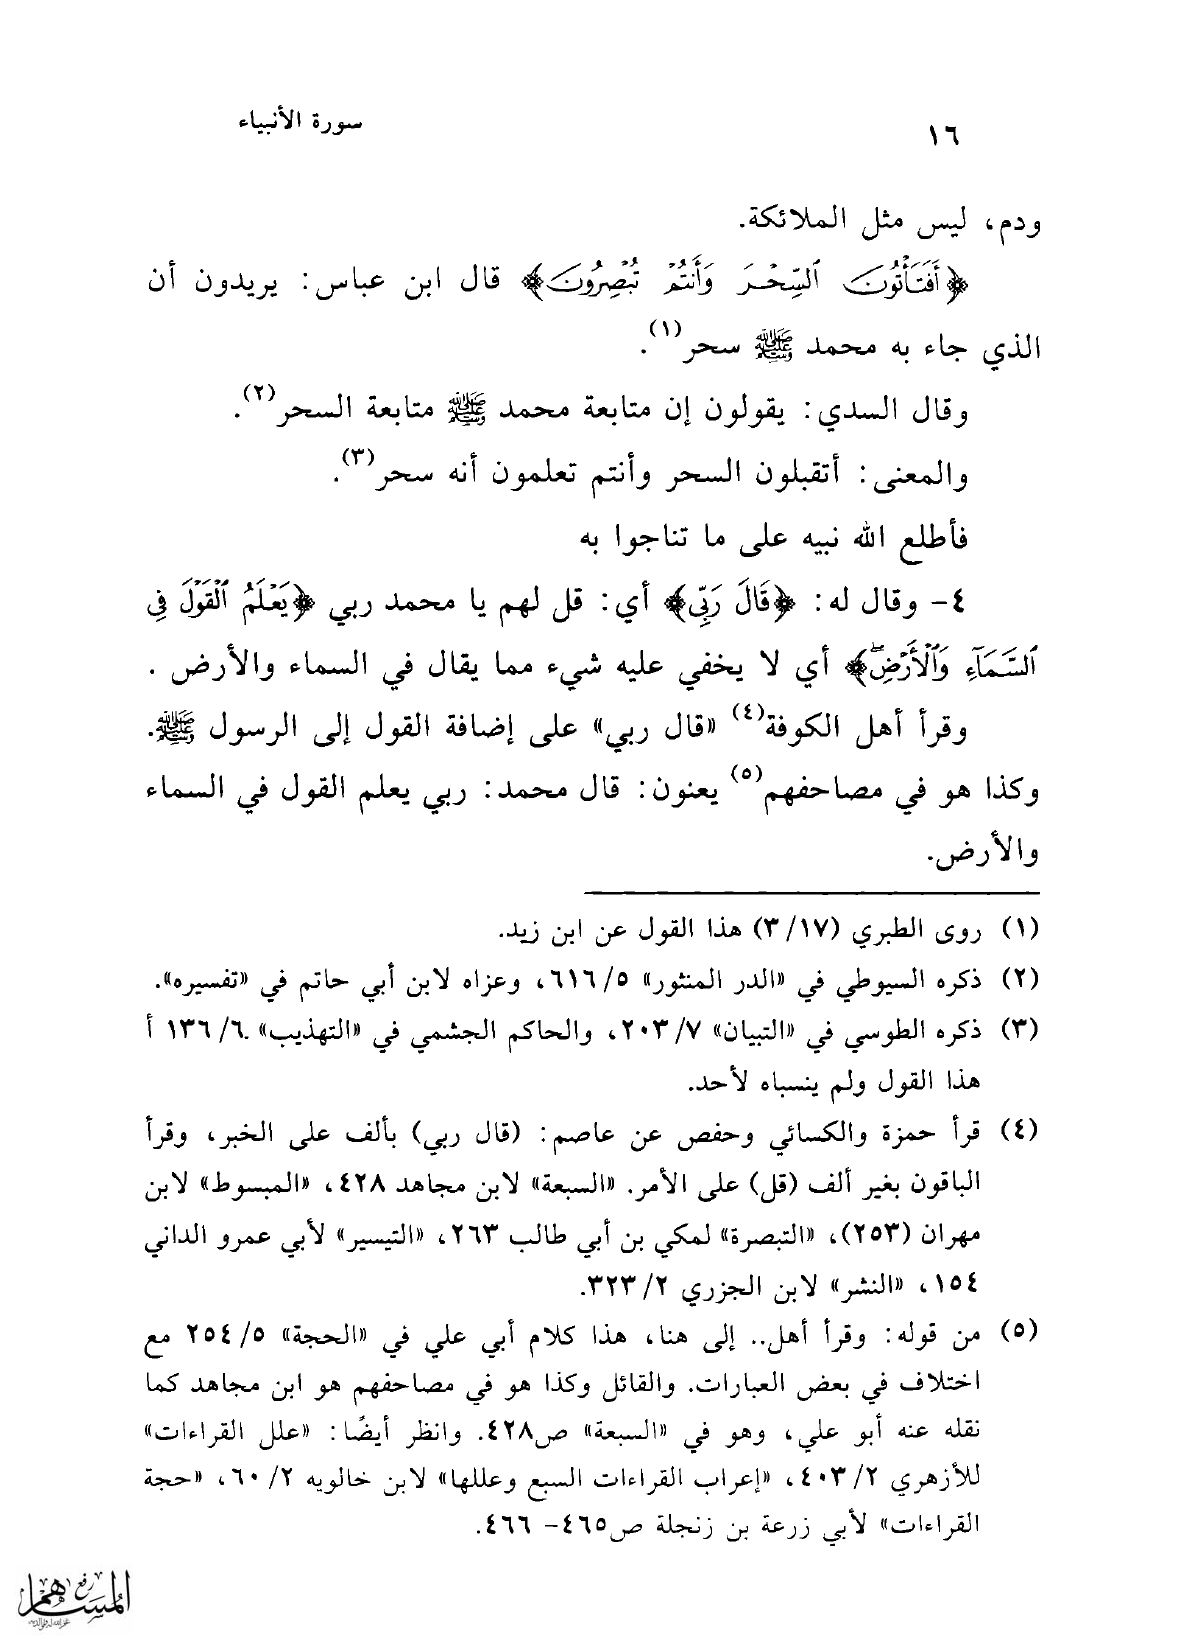 ١٦
سورة الأنبياء
ودم، ليس مثل الملائكة.
﴿أَفَتَأْتُونَ ٱلسِّحْرَ وَأَنتُمْ تُبْصِرُونَ﴾ قال ابن عباس: يريدون أن
الذي جاء به محمد ﷺ سحر(١).
وقال السدي: يقولون إن متابعة محمد ﷺ متابعة السحر(٢).
والمعنى: أتقبلون السحر وأنتم تعلمون أنه سحر(٣).
فأطلع الله نبيه على ما تناجوا به
٤- وقال له: ﴿قَالَ رَبِّي﴾ أي: قل لهم يا محمد ربي ﴿يَعْلَمُ ٱلْقَوْلَ فِي
ٱلسَّمَآءِ وَٱلْأَرْضِۖ﴾ أي لا يخفي عليه شيء مما يقال في السماء والأرض .
وقرأ أهل الكوفة(٤) «قال ربي» على إضافة القول إلى الرسول ﷺ.
وكذا هو في مصاحفهم(٥) يعنون: قال محمد: ربي يعلم القول في السماء
والأرض.
(١) روى الطبري (١٧/ ٣) هذا القول عن ابن زيد.
(٢) ذكره السيوطي في «الدر المنثور» ٥/ ٦١٦، وعزاه لابن أبي حاتم في «تفسيره».
(٣) ذكره الطوسي في «التبيان» ٧/ ٢٠٣، والحاكم الجشمي في «التهذيب» ٦/ ١٣٦ أ
هذا القول ولم ينسباه لأحد.
(٤) قرأ حمزة والكسائي وحفص عن عاصم: (قال ربي) بألف على الخبر، وقرأ
الباقون بغير ألف (قل) على الأمر. «السبعة» لابن مجاهد ٤٢٨، «المبسوط» لابن
مهران (٢٥٣)، «التبصرة» لمكي بن أبي طالب ٢٦٣، «التيسير» لأبي عمرو الداني
١٥٤، «النشر» لابن الجزري ٢/ ٣٢٣.
(٥) من قوله: وقرأ أهل.. إلى هنا، هذا كلام أبي علي في «الحجة» ٥/ ٢٥٤ مع
اختلاف في بعض العبارات. والقائل وكذا هو في مصاحفهم هو ابن مجاهد كما
نقله عنه أبو علي، وهو في «السبعة» ص٤٢٨. وانظر أيضًا: «علل القراءات»
للأزهري ٢/ ٤٠٣، «إعراب القراءات السبع وعللها» لابن خالويه ٢/ ٦٠، «حجة
القراءات» لأبي زرعة بن زنجلة ص٤٦٥- ٤٦٦.